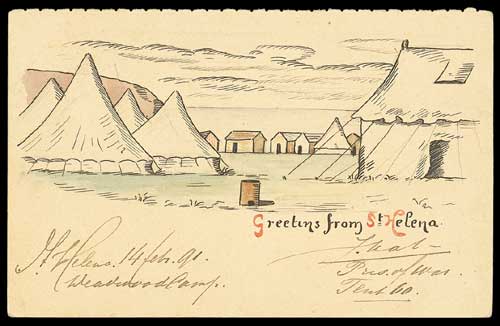 Greetins from St Helena.
St Helena. 14 feb.
Deadwood Camp.
Pris. of War.
Tent 60.